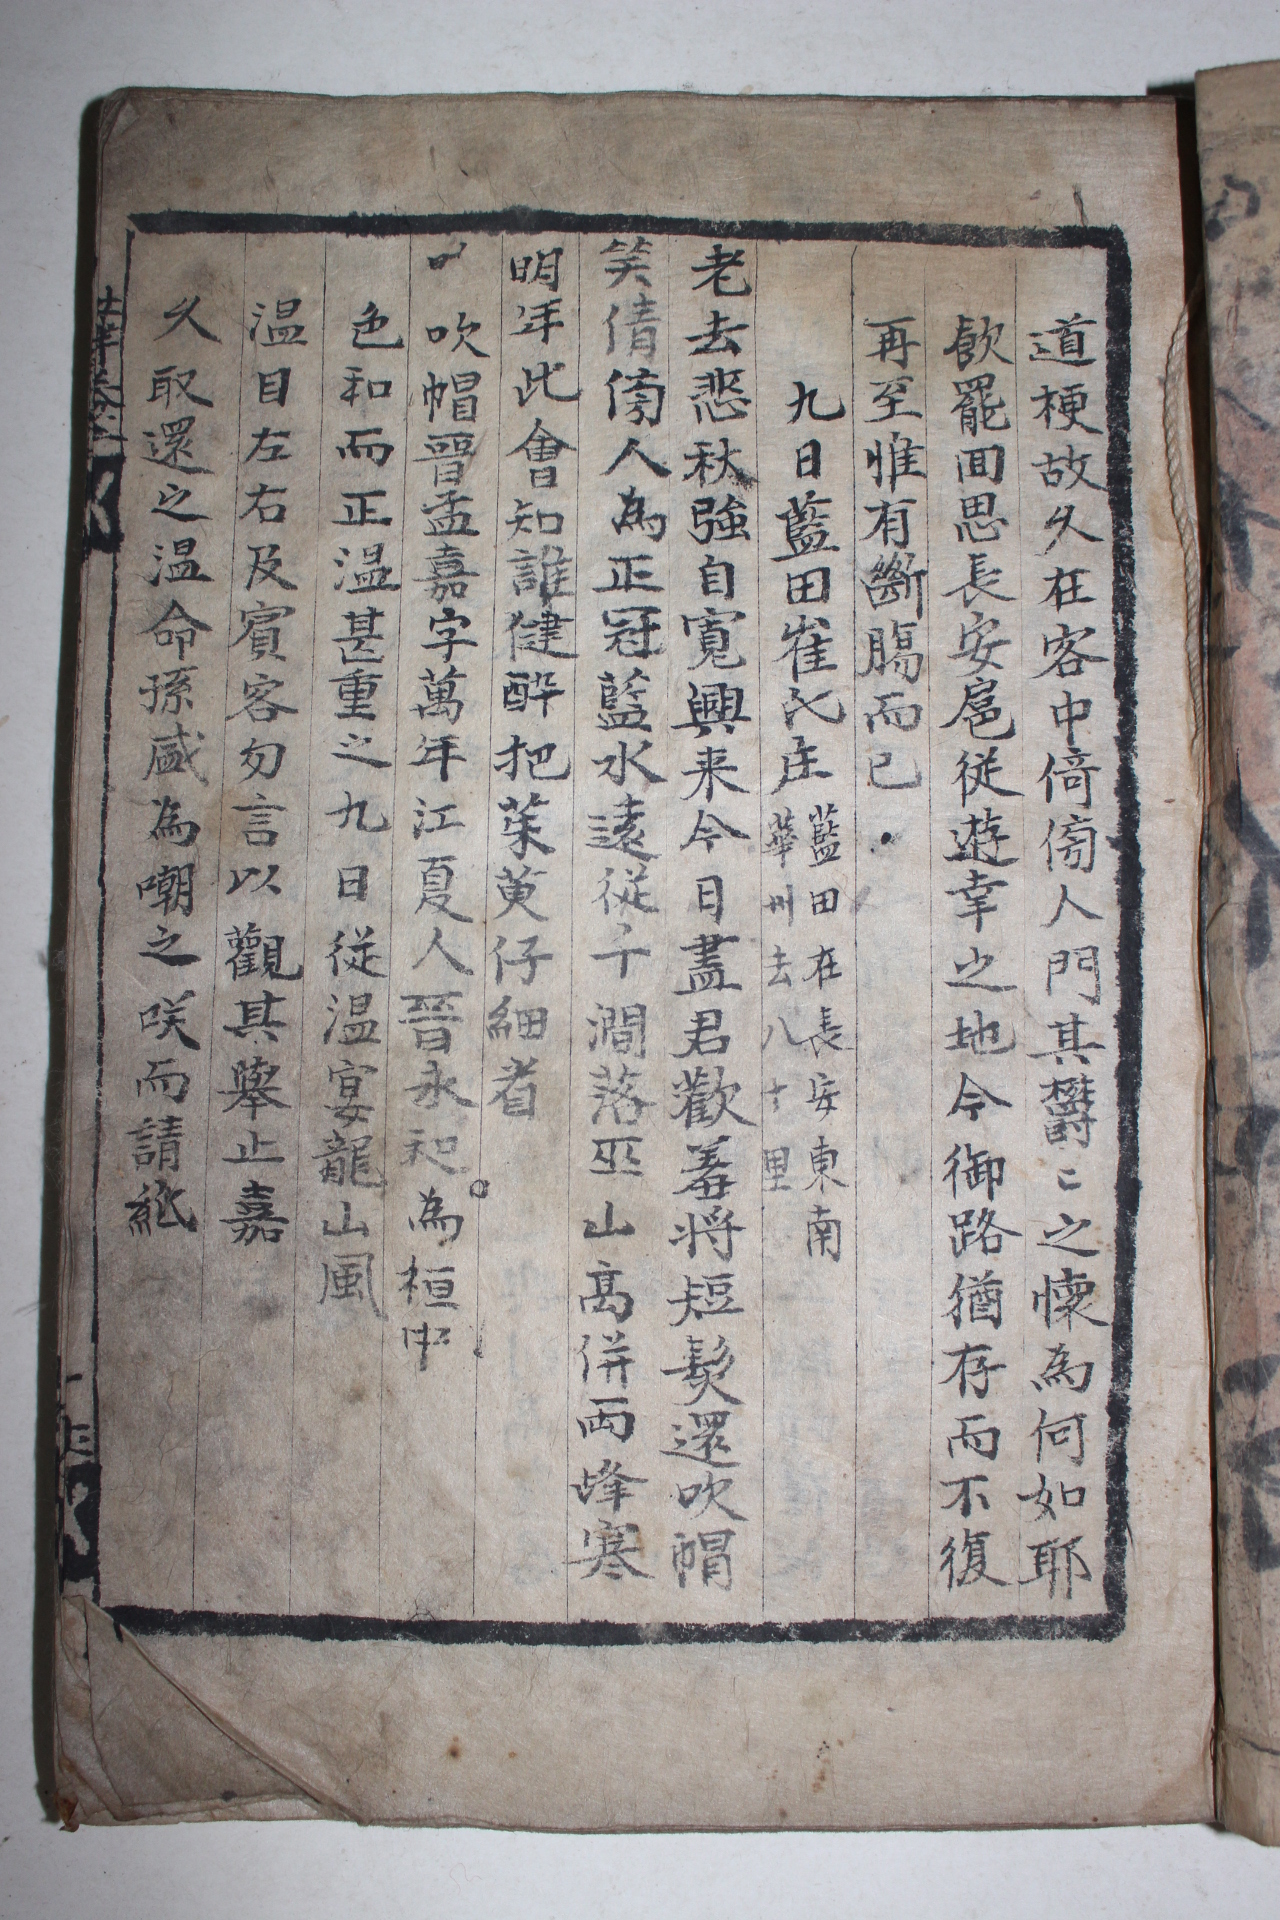 道梗故久在客中倚傍人門其欝〻之懷為何如耶
飮罷回思長安扈從遊幸之地今御路猶存而不復
再至惟有斷膓而已
九日藍田崔氏庄 藍田在長安東南
華州去八十里
老去悲秋強自寬興来今日盡君歡羞将短髮還吹帽
笑倩傍人為正冠藍水遠從千澗落巫山高併两峰寒
明年此會知誰健酔把茱萸仔細看
吹帽晋孟嘉字萬年江夏人晉永和為桓中
色和而正温甚重之九日從温宴龍山風
温目左右及賓客勿言以觀其擧止嘉
久取還之温命孫盛為嘲之咲而請紙